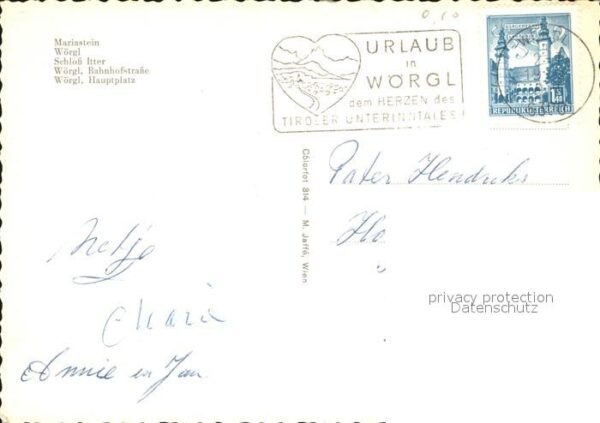 Mariastein
Wörgl
Schloß Itter
Wörgl, Bahnhofstraße
Wörgl, Hauptplatz
0,10
URLAUB
in
WÖRGL
dem HERZEN des
TIROLER UNTERINNTALES
REPUBLIK ÖSTERREICH
Cólorfot 814 — M. Jaffé, Wien
Pater Hendriks
Ho
Netje
Maria
Annie en Jan
privacy protection
Datenschutz